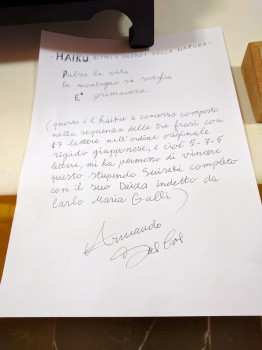 - HAIKU RITMI E SILENZI DELLA NATURA -
- Pulsa la vita
la montagna si sveglia
È primavera
(questo è l'haiku a concorso composto
nella sequenza delle tre frasi con
17 lettere nell'ordine originale
rigido giapponese, e cioè 5-7-5
lettere, mi ha permesso di vincere
questo stupendo Suiseki completo
con il suo Daiza indetto da
Carlo Maria Galli)
Armando
Dal Col